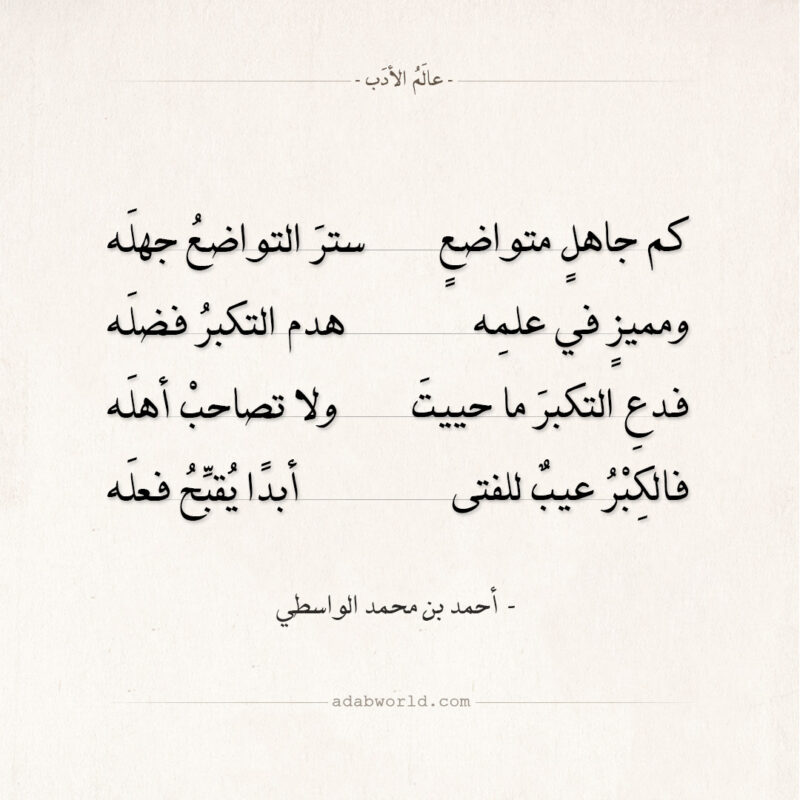 - عالَمُ الأدَب -
كم جاهلٍ متواضعٍ سترَ التواضعُ جهلَه
ومميزٍ في علمِه هدم التكبرُ فضلَه
فدعِ التكبرَ ما حييتَ ولا تصاحبْ أهلَه
فالكِبْرُ عيبٌ للفتى أبدًا يُقبِّحُ فعلَه
- أحمد بن محمد الواسطي
adabworld.com